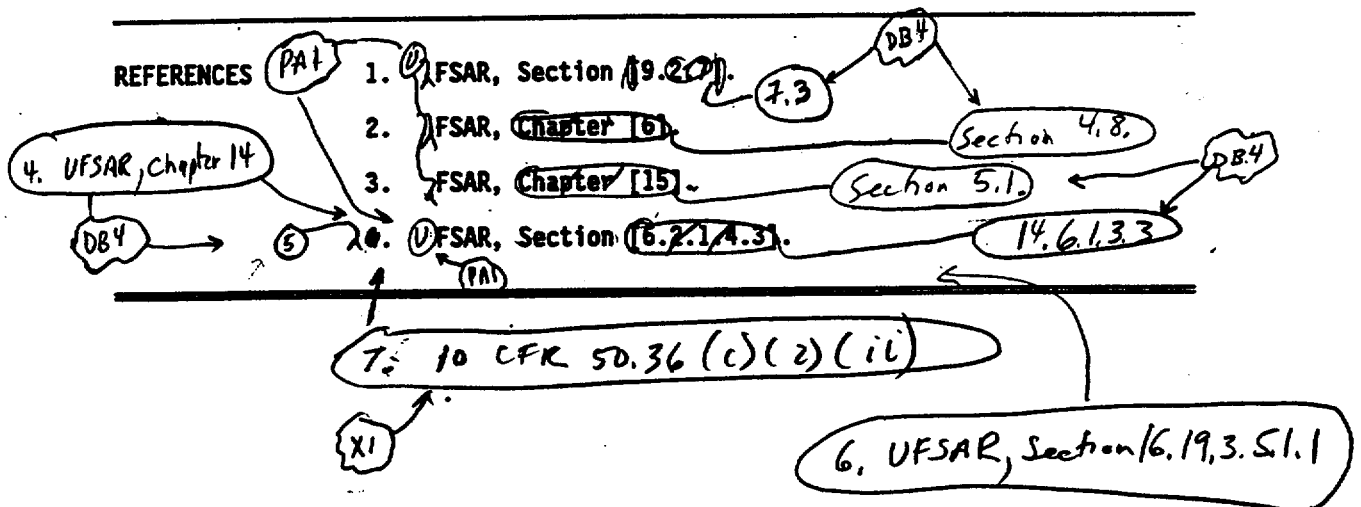 DB4
REFERENCES PA1 1. U FSAR, Section [9.2.
7.3
2. FSAR, Chapter [6]. Section 4.8.
4. UFSAR, Chapter 14
DB.4
3. FSAR, Chapter [15]. Section 5.1.
DB4 5 4. U FSAR, Section [6.2.1.4.3]. 14.6.1.3.3
PA1
7. 10 CFR 50.36 (c)(2)(ii)
X1
6. UFSAR, Section 16.19.3.5.1.1